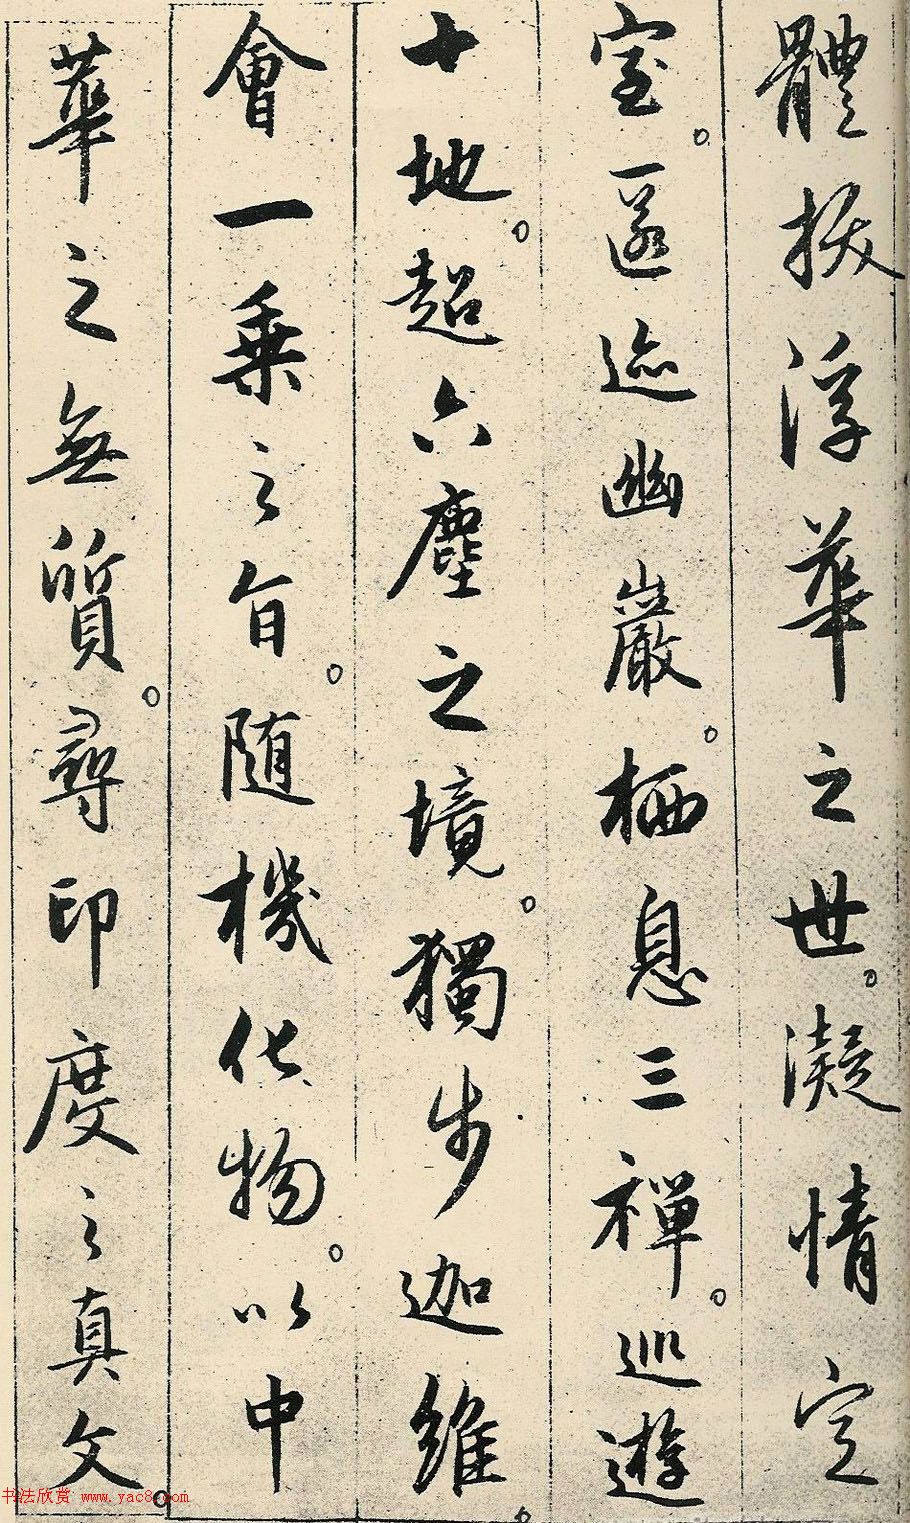 體拔浮華之世。凝情定
室。匿迹幽巖。栖息三禪。巡遊
十地。超六塵之境。獨步迦維。
會一乘之旨。随機化物。以中
華之無質。尋印度之真文。
书法欣赏 www.yac8.com